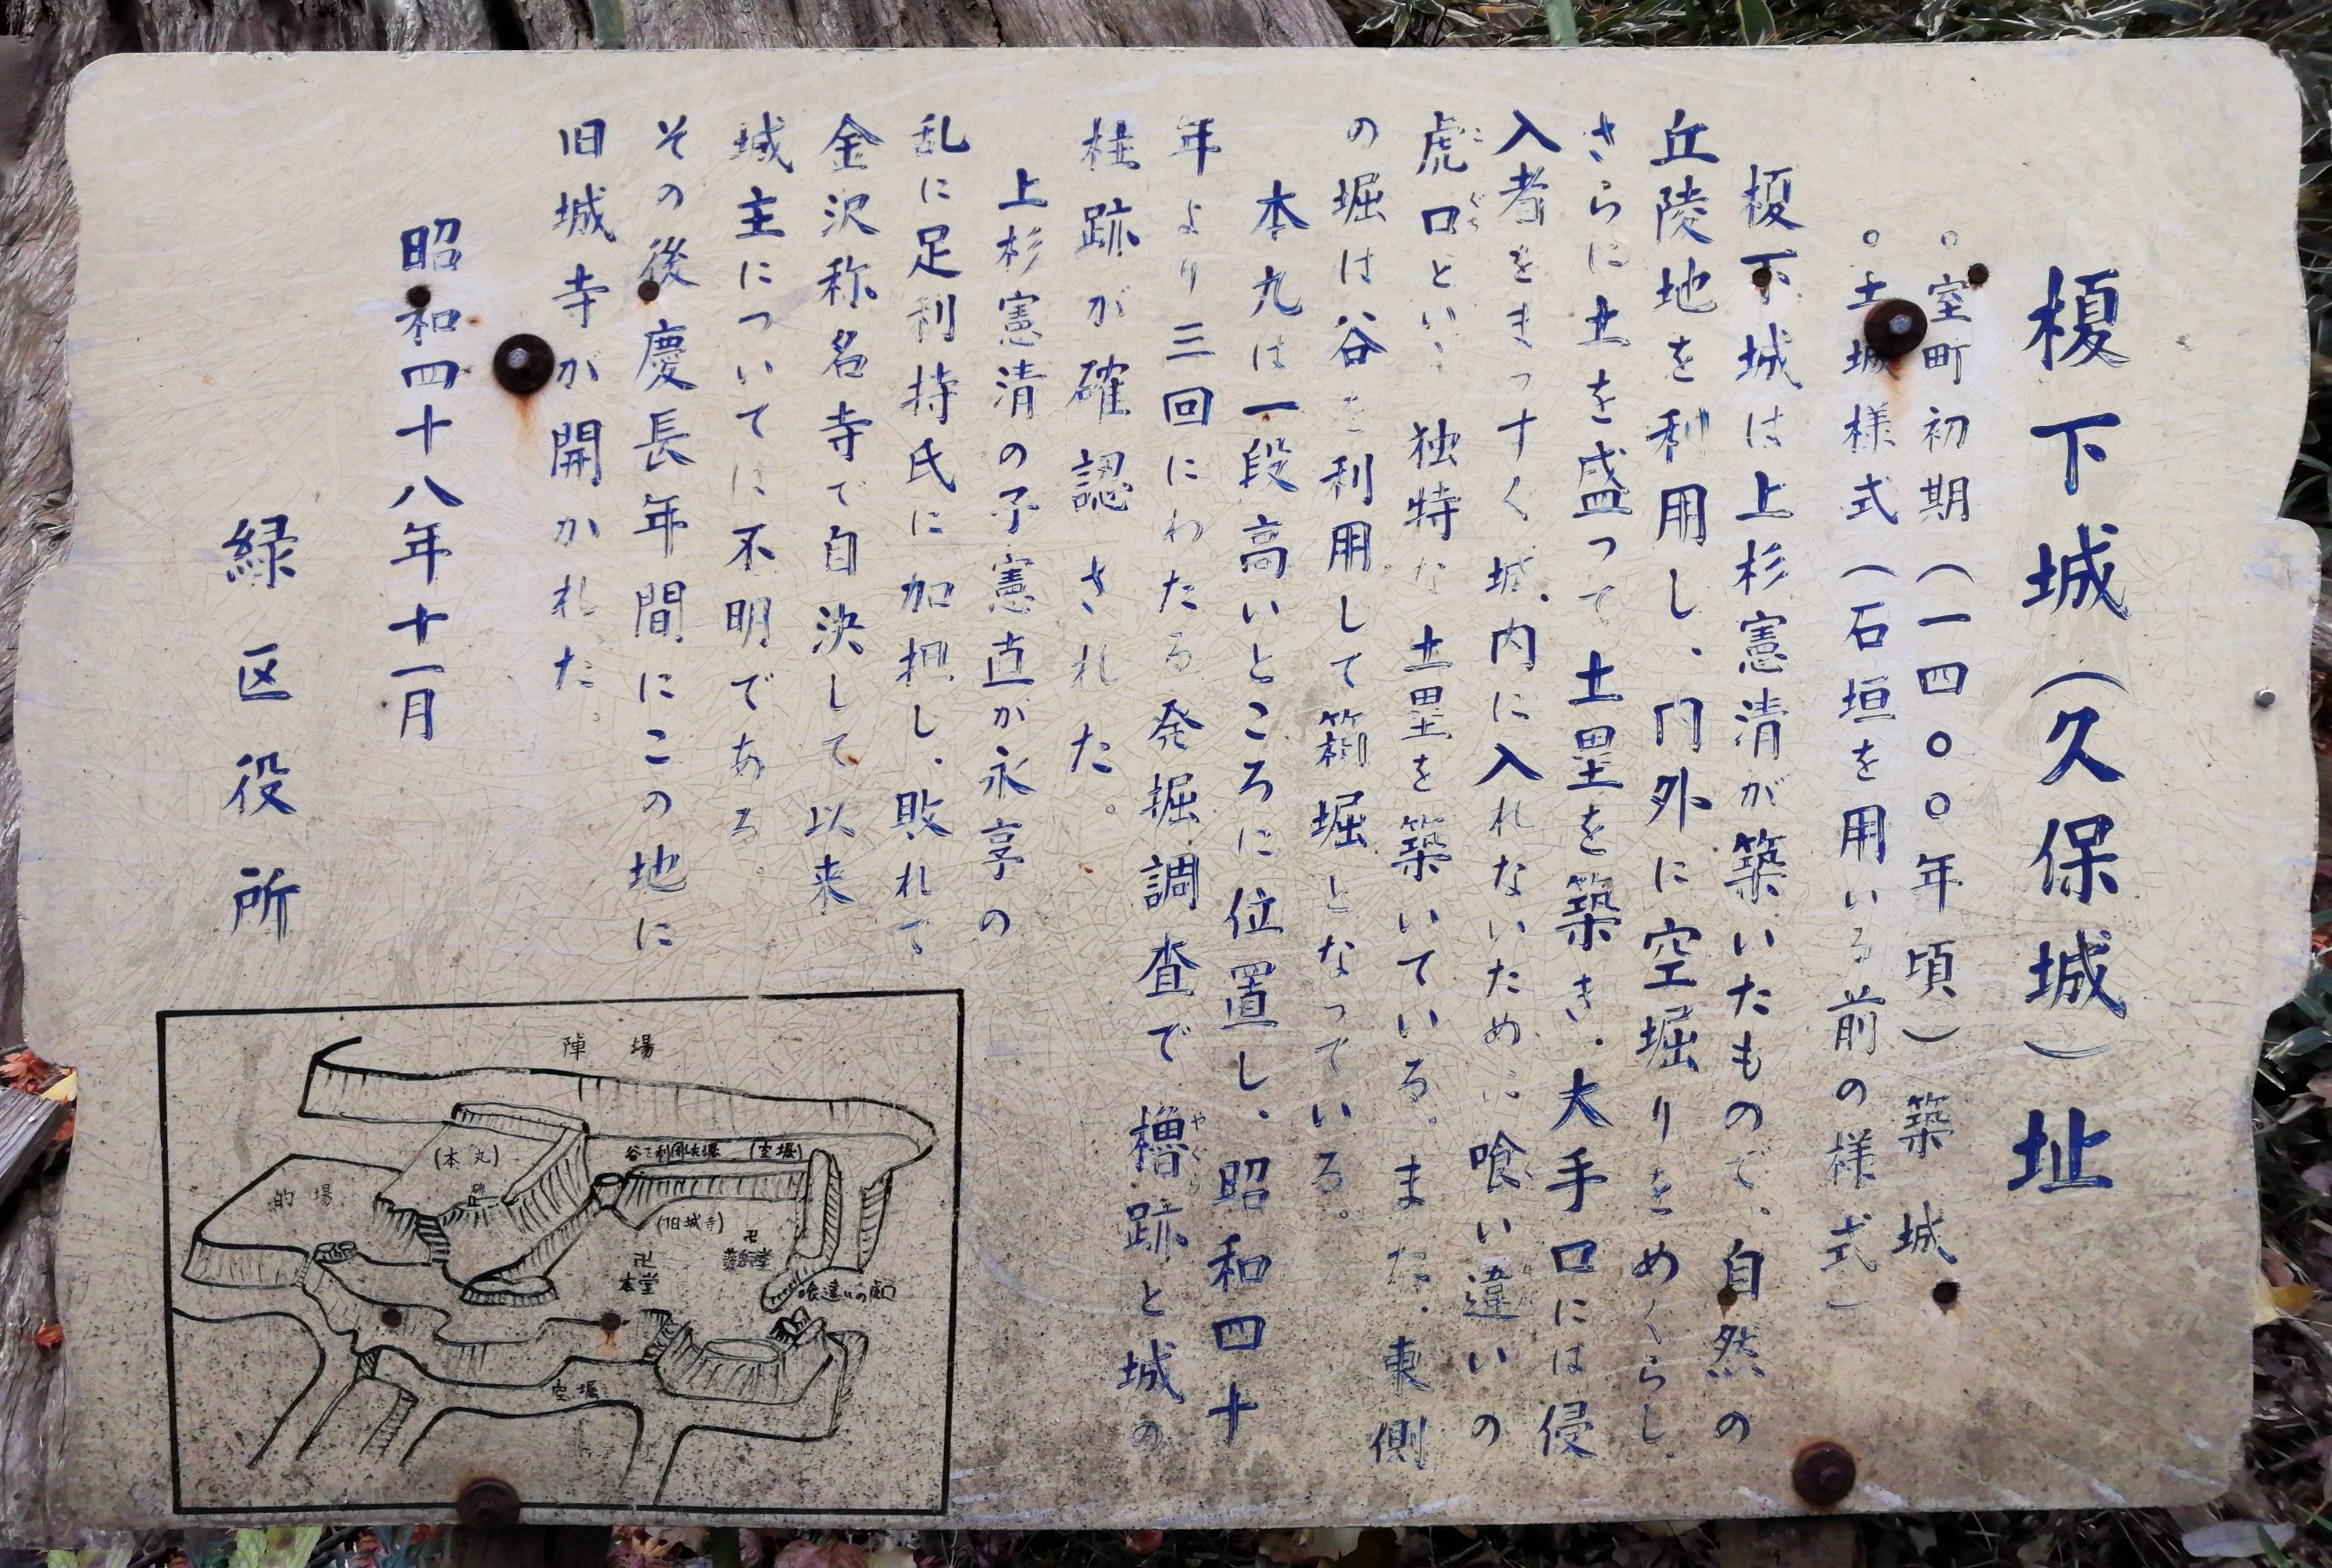 榎下城（久保城）址
。室町初期（一四〇〇年頃）築城
。土城様式（石垣を用いる前の様式）
榎下城は上杉憲清が築いたもので、自然の
丘陵地を利用し、門外に空堀りをめぐらし、
さらに土を盛って土塁を築き、大手口には侵
入者をまっすぐ城内に入れないために喰い違いの
虎口といい、独特な土塁を築いている。また、東側
こぐち
の堀は谷を利用して箱堀となっている。
本丸は一段高いところに位置し、昭和四十
年より三回にわたる発掘調査で櫓跡と城の
やぐら
柱跡が確認された。
上杉憲清の子憲直が永享の
乱に足利持氏に加担し、敗れて
金沢称名寺で自決して以来
城主については不明である。
その後慶長年間にこの地に
旧城寺が開かれた。
昭和四十八年十一月
緑区役所
陣場
(本丸)
的場
(空堀)
(旧城寺)
卍
本堂
卍
喰違いの虎口
空堀